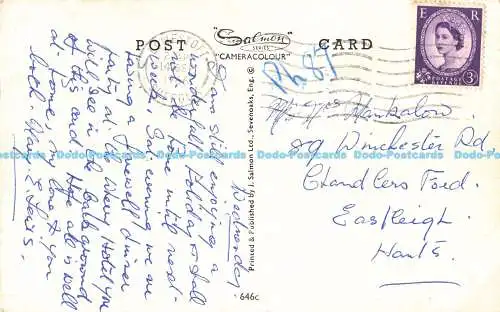 POST
Salmon
SERIES
"CAMERACOLOUR"
CARD
E R
POSTAGE
REVENUE
3D
Ph 87
Wednesday
I am still enjoying a
wonderful Holiday & shall
not be home until next
week, This evening we are
having a farewell dinner
party at the Hotel you
will see in the background
of this card. Hope all is well
at home, my love to you
both.
Hankalow
89 Winchester Rd
Chandlers Ford.
Eastleigh
Hants.
Printed & Published by J. Salmon Ltd., Sevenoaks, Eng. ©
646c
Do-Postcards Do-Postcards Do-Postcards Do-Postcards Do-Postcards Do-Postcards